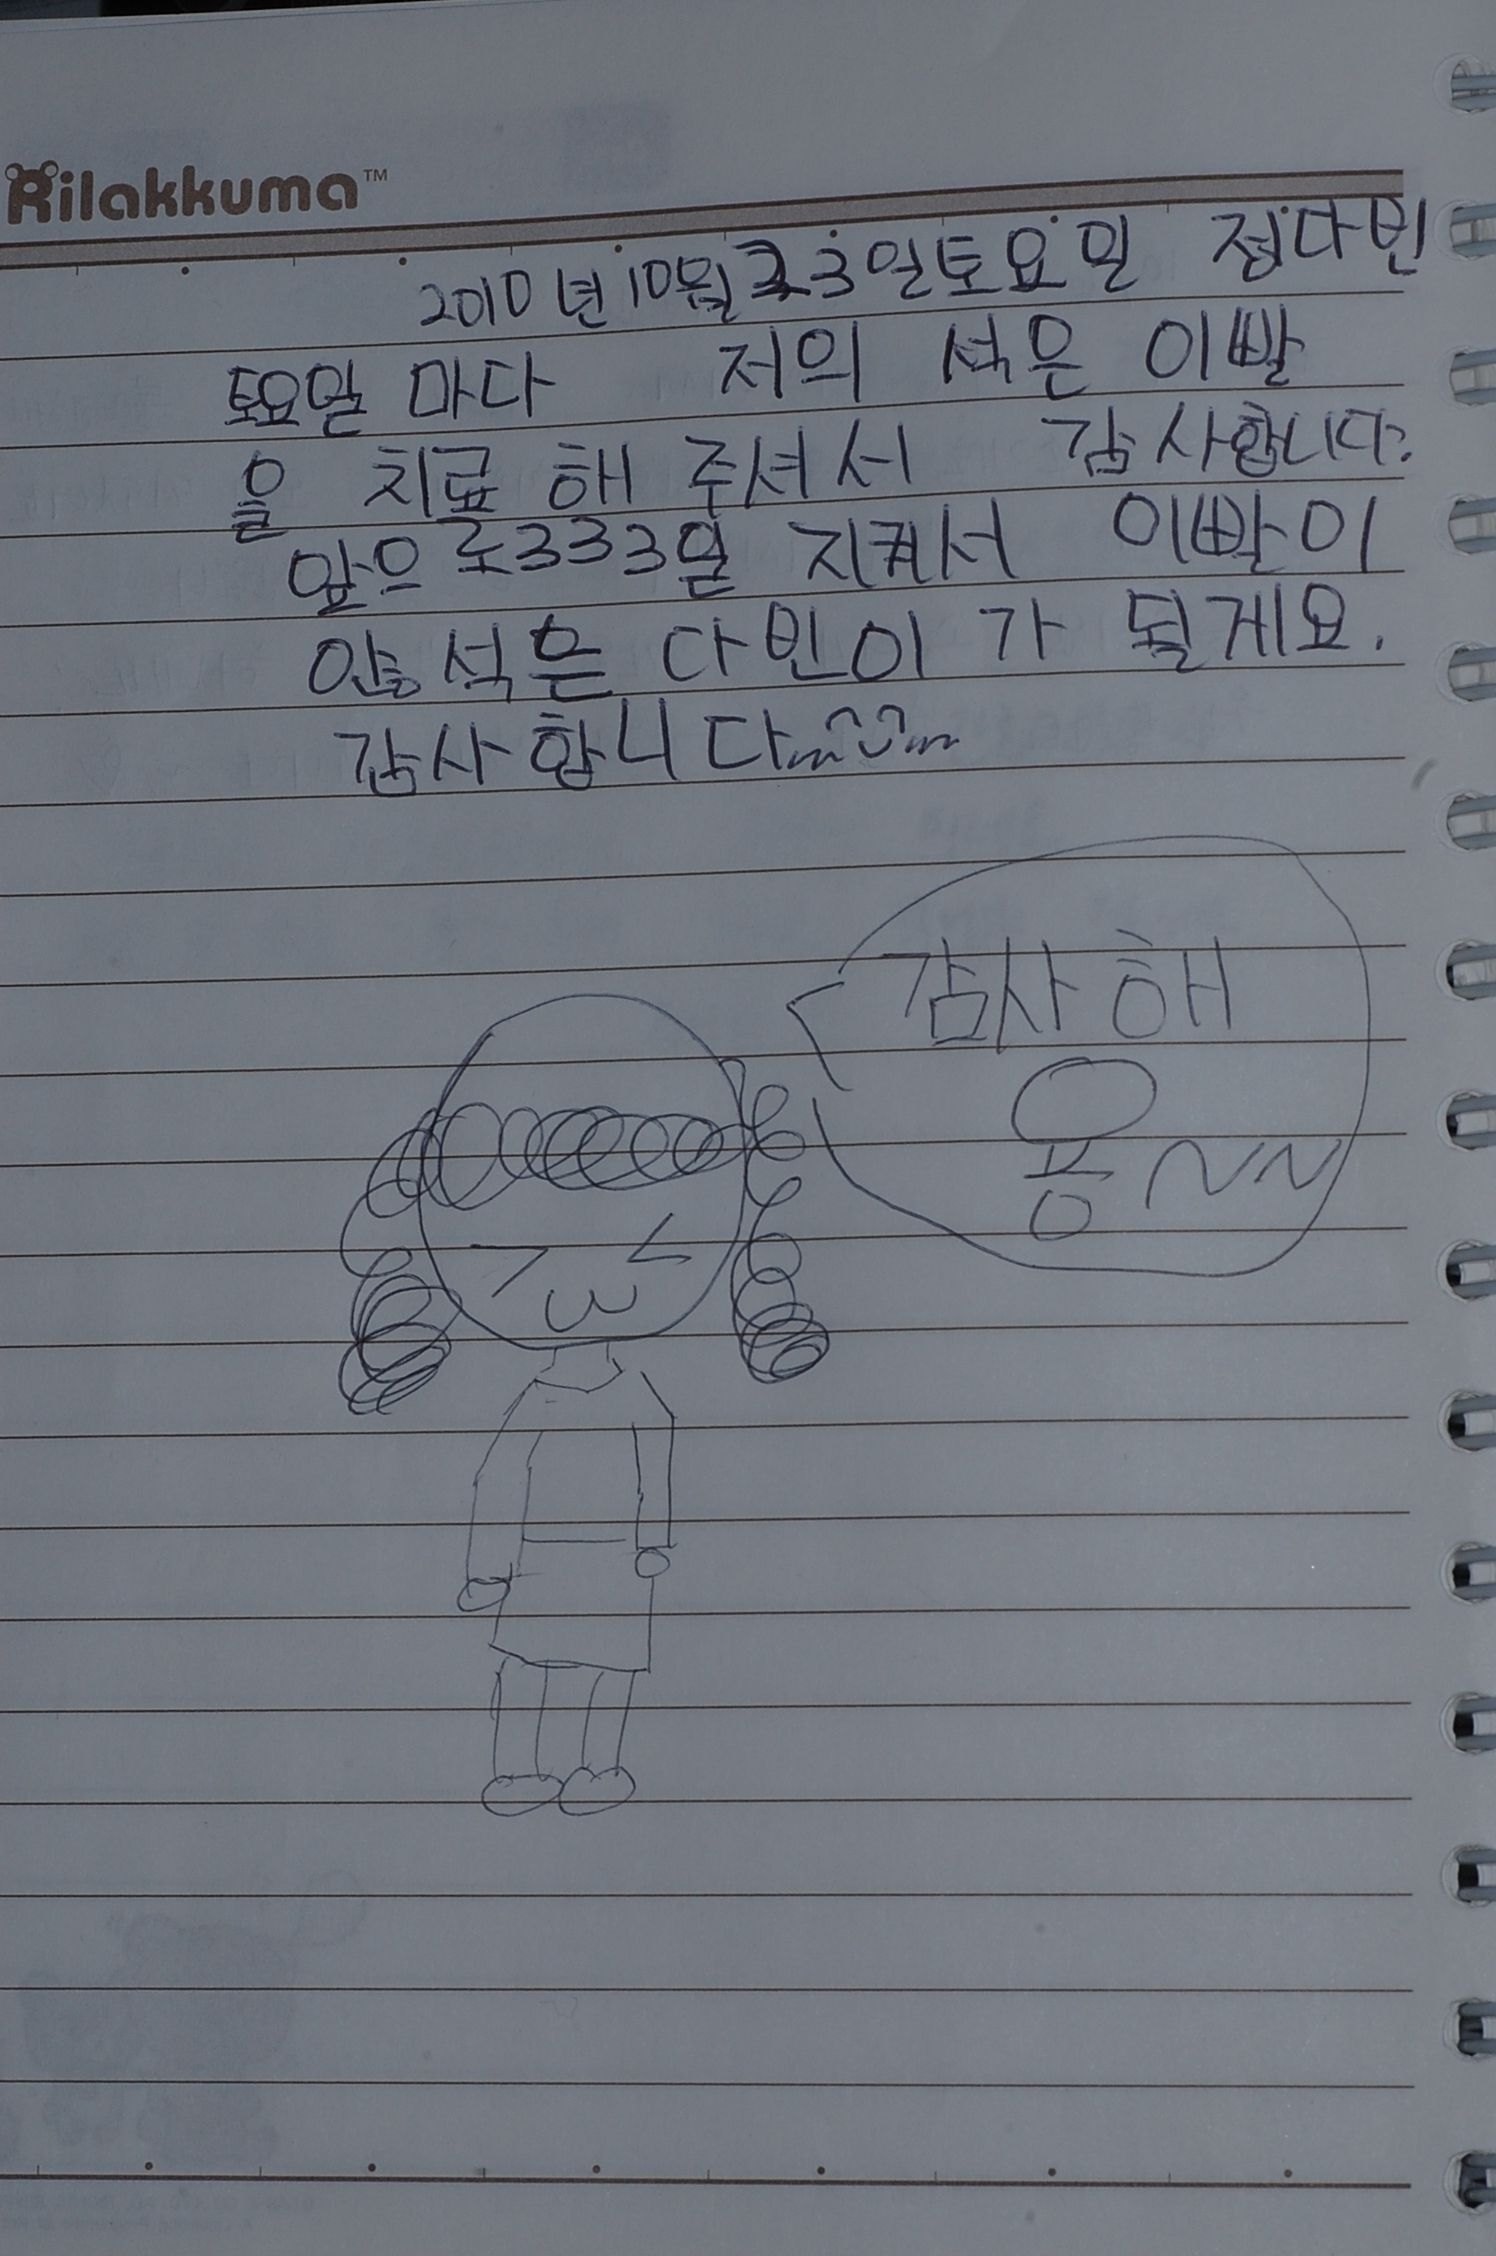 Rilakkuma™
2010년 10월 23일 토요일 정다빈
토요일 마다 저의 썩은 이빨
을 치료 해 주셔서 감사합니다.
앞으로 333일 지켜서 이빨이
않썩은 다빈이가 될게요.
감사합니다
감사해
용~~